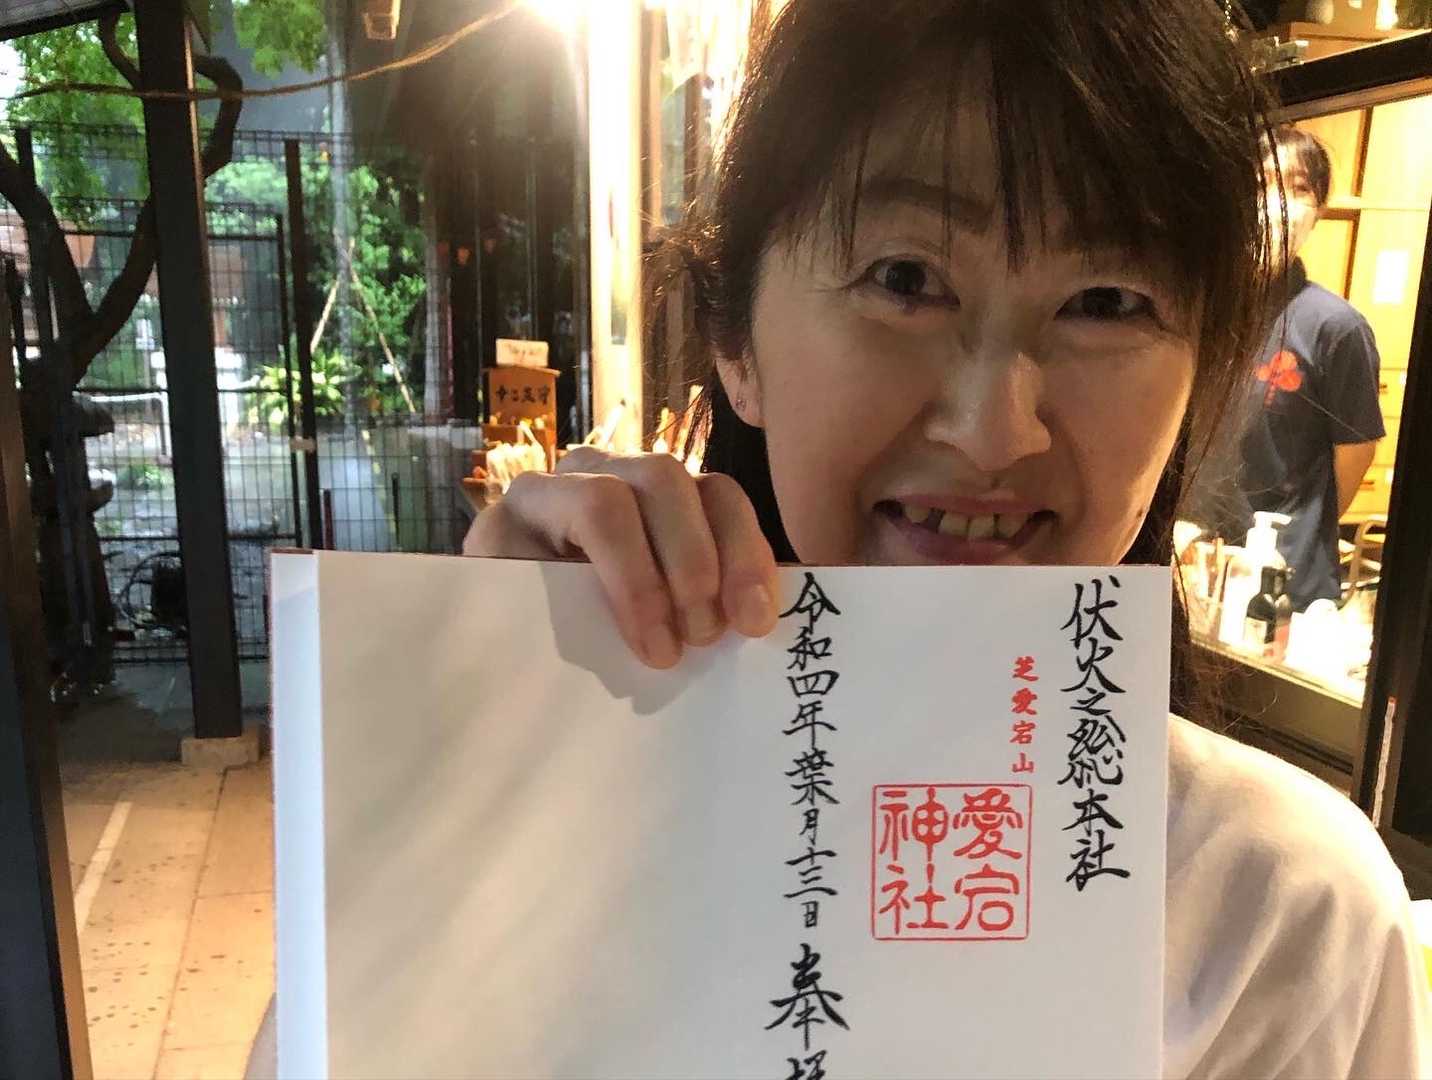 伏火之総本社
芝愛宕山
愛宕
神社
令和四年葉月十三日 奉拝